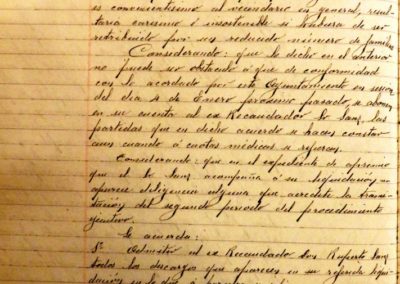 es convenientísimo al vecindario en general, resul-
taria carísimo é insostenible si hubiera de ser
retribuido por un reducido número de familias
Considerando: que lo dicho en el anterior
no puede ser obstáculo á que de conformidad
con lo acordado por este Ayuntamiento en sesión
del dia 4 de Enero próximo pasado, se abonen
en su cuenta al ex Recaudador Sr Sanz, las
partidas que en dicho acuerdo se hacen constar
aun cuando á cuotas médicas se refieran.
Considerando: que en el expediente de apremio
que el Sr Sanz acompaña á su liquidación, no
aparece diligencia alguna que acredite la trami-
tación del segundo periodo del procedimiento
ejecutivo.
Se acuerda:
1º Admitir al ex Recaudador Don Ruperto Sanz
todos los descargos que aparecen en su referida liqui-
dación